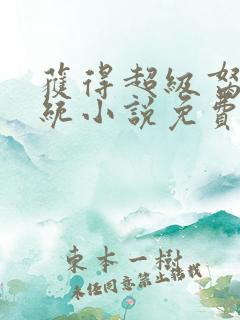 獲得超級
統小說免費
東本一樹
未经同意禁止转载